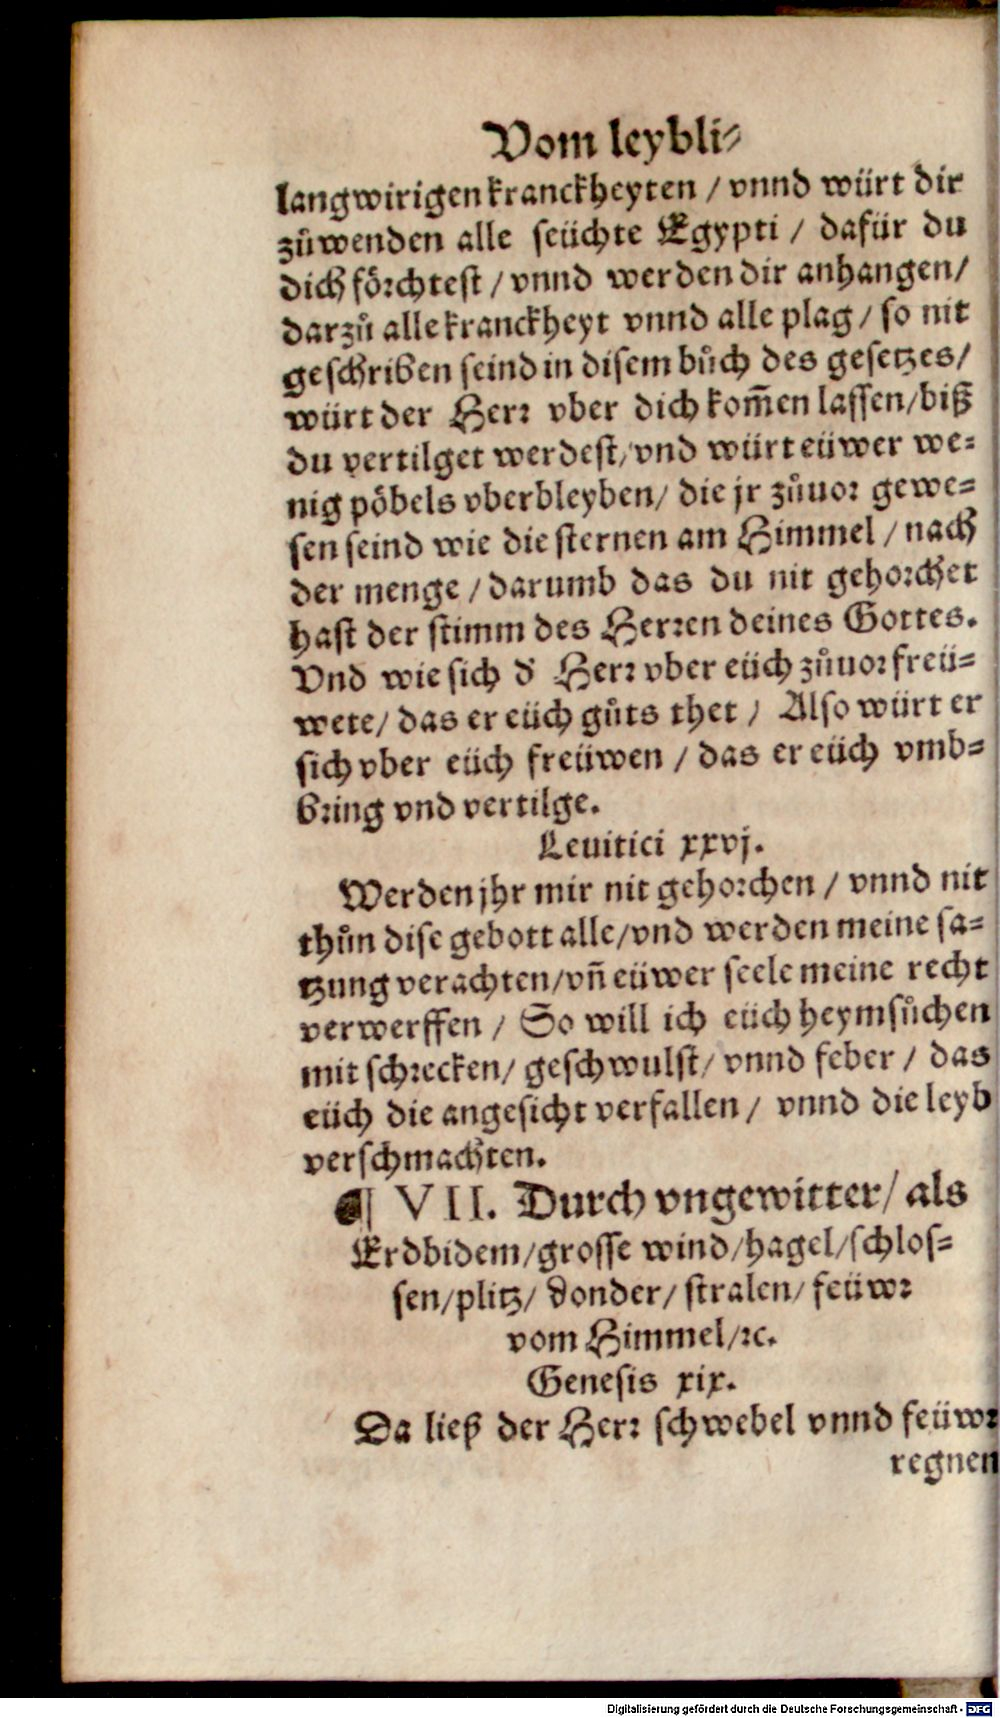 Vom leybli⸗
langwirigen kranckheyten / vnnd würt dir
zůwenden alle seüchte Egypti / dafür du
dich förchtest / vnnd werden dir anhangen /
darzů alle kranckheyt vnnd alle plag / so nit
geschriben seind in disem bůch des gesetzes /
würt der Herr vber dich kom̄en lassen / biß
du vertilget werdest / vnd würt eüwer we⸗
nig pöbels vberbleyben / die jr zůuor gewe⸗
sen seind wie die sternen am Himmel / nach
der menge / darumb das du nit gehorchet
hast der stimm des Herren deines Gottes.
Vnd wie sich d' Herr vber eüch zůuor freü⸗
wete / das er eüch gůts thet / Also würt er
sich vber eüch freüwen / das er eüch vmb⸗
bring vnd vertilge.
Leuitici xxvj.
Werden jhr mir nit gehorchen / vnnd nit
thůn dise gebott alle / vnd werden meine sa⸗
tzung verachten / vn̄ eüwer seele meine recht
verwerffen / So will ich eüch heymsůchen
mit schrecken / geschwulst / vnnd feber / das
eüch die angesicht verfallen / vnnd die leyb
verschmachten.
¶ VII. Durch vngewitter / als
Erdbidem / grosse wind / hagel / schlos⸗
sen / plitz / donder / stralen / feüwr
vom Himmel / ꝛc.
Genesis xix.
Da ließ der Herr schwebel vnnd feüwr
regnen
Digitalisierung gefördert durch die Deutsche Forschungsgemeinschaft - DFG